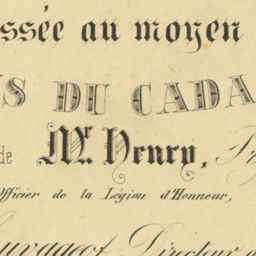 ssée au moyen
S DU CADA
de Mr. Henry, Pr
Officier de la Légion d'Honneur,
uvageot, Directeur